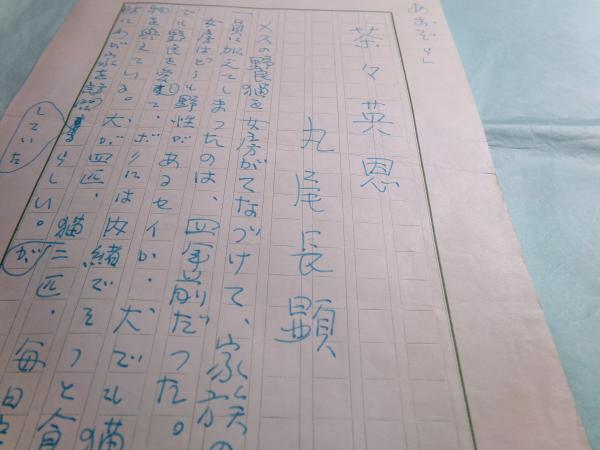 あおぞら」
茶々英恩
丸尾長顕
メスの野良猫を女房がてなづけて、家族の
一員に加えてしまったのは、四年前だった。
女房はどうも野性があるセイか、犬でも猫
でも野良を愛して、ボクには内緒でそっと食
物を与えている。犬が四匹、猫二匹、毎日
わが家を訪問
していた
らしい。が